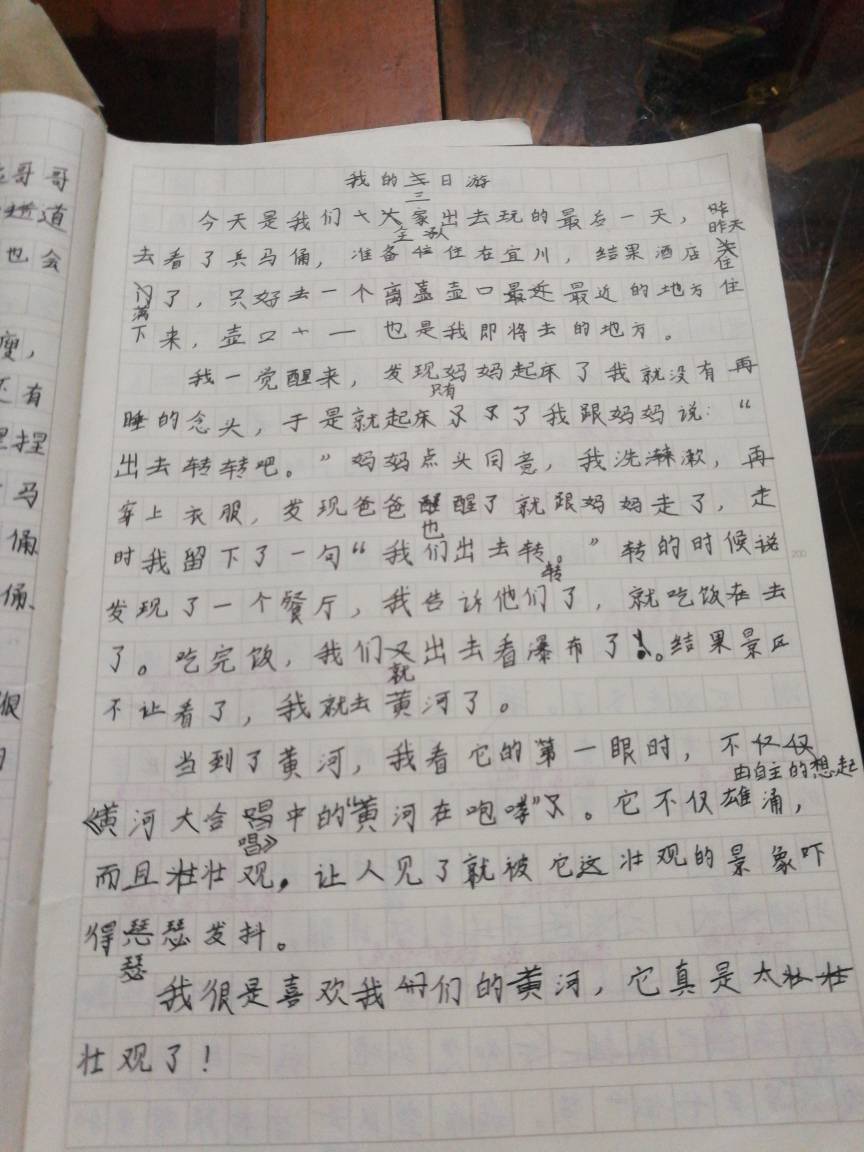 我的三日游
今天是我们大家出去玩的最后一天，昨天
去看了兵马俑，准备住在宜川，结果酒店住
满了，只好去一个离壶口最近的地方住
下来，壶口也是我即将去的地方。
我一觉醒来，发现妈妈起床了我就没有再
睡的念头，于是就起床了我跟妈妈说：“
出去转转吧。”妈妈点头同意，我洗漱，再
穿上衣服，发现爸爸也醒了就跟妈妈走了，走
时我留下了一句“我们出去转转。”转的时候说
发现了一个餐厅，我告诉他们了，就吃饭在去
了。吃完饭，我们就出去看瀑布了。结果景区
不让看了，我就去黄河了。
当到了黄河，我看它的第一眼时，不
由自主的想起
《黄河大合唱》中的“黄河在咆哮”。它不仅雄涌，
而且壮观，让人见了就被它这壮观的景象吓
得瑟瑟发抖。
我很是喜欢我们的黄河，它真是太
壮观了！
哥哥
道
也会
瘦，
还有
捏
马
俑
俑、
很